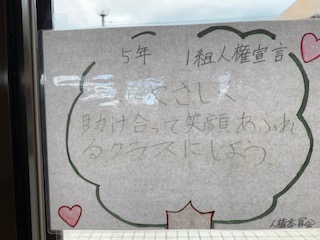 5年 1組人権宣言
やさしく
助け合って笑顔あふれ
るクラスにしよう
人権委員会